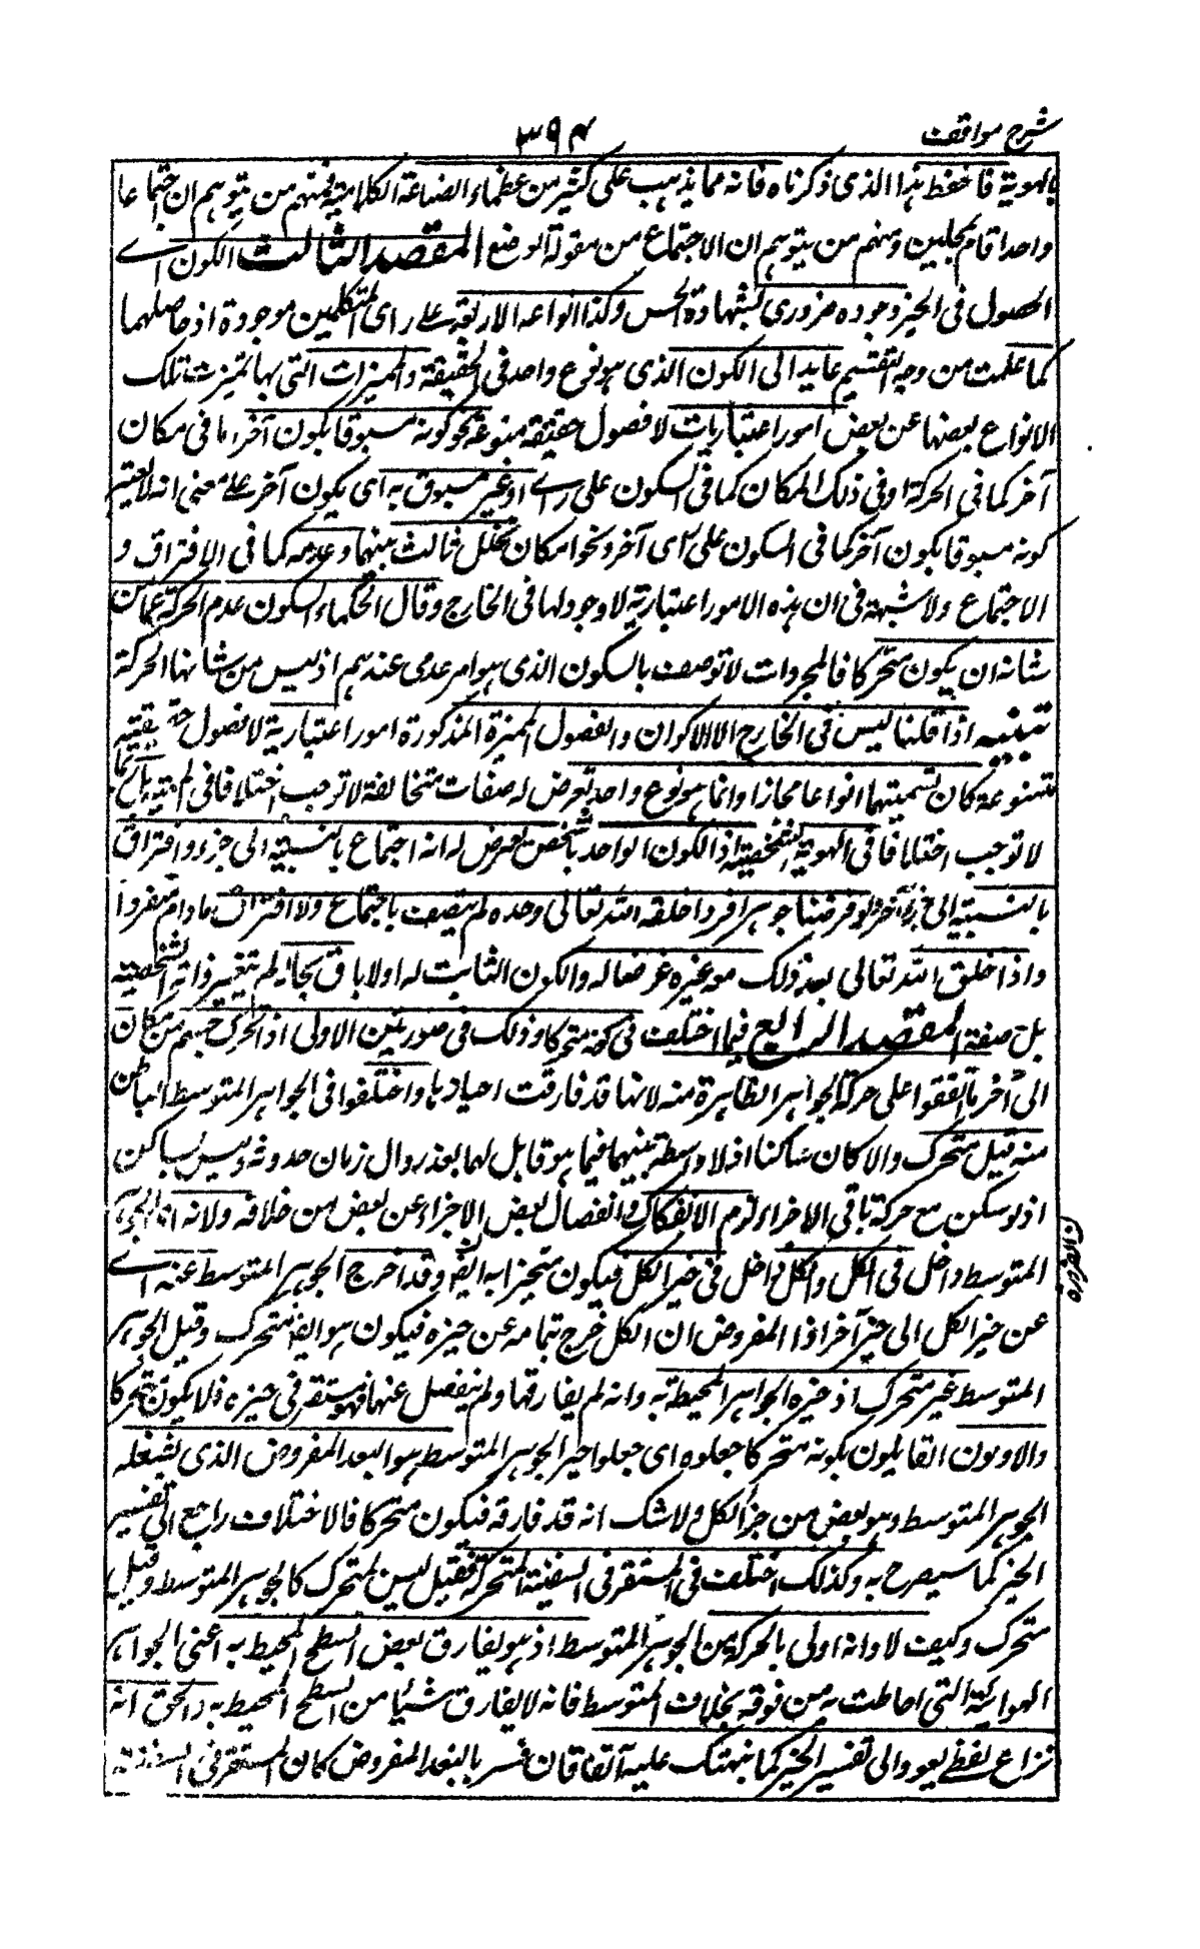 شرح مواقف
۳۹۴
بالهوية فاحفظ هذا الذى ذكرناه فانه مما يذهب على كثير من عظماء الصناعة الكلامية فمنهم من يتوهم ان اجتماعا
واحدا قام بمحلين ومنهم من يتوهم ان الاجتماع من مقولة الوضع المقصد الثالث الكون اے
الحصول فى الحيز وجوده ضرورى بشهادة الحس وكذا انواعه الاربعة على راى المتكلمين موجودة اذ حاصلها
كما علمت من وجه التقسيم عايد الى الكون الذى هو نوع واحد فى الحقيقة والمميزات التى بها تميزت تلك
الانواع بعضها عن بعض امور اعتباريات لا فصول حقيقة منوعة نحو كونه مسبوقا بكون آخر اما فى مكان
آخر كما فى الحركة او فى ذلك المكان كما فى السكون على راے او غير مسبوق به اى بكون آخر على معنى انه لا يعتبر
كونه مسبوقا بكون آخر كما فى السكون على راى آخر ونحو امكان تخلل ثالث بينهما وعدمه كما فى الافتراق و
الاجتماع ولا شبهة فى ان هذه الامور اعتبارية لا وجود لها فى الخارج وقال الحكماء السكون عدم الحركة عما من
شانه ان يكون متحركا فالمجردات لا توصف بالسكون الذى هو امر عدمى عندهم اذ ليس من شانها الحركة
تنبيه اذا قلنا ليس فى الخارج الا الاكوان والفصول المميزة المذكورة امور اعتبارية لا فصول حقيقية
متنوعة كان تسميتها انواعا مجازا وانما هو نوع واحد تعرض له صفات متخالفة لا توجب اختلافا فى الماهية بل ربما
لا توجب اختلافا فى الهوية الشخصية اذ الكون الواحد بالشخص يعرض له انه اجتماع بالنسبة الى جزء وافتراق
بالنسبة الى جزء آخر ولو فرضنا جوهرا فردا خلقه الله تعالى وحده لم يتصف باجتماع ولا افتراق ما دام مفردا
واذا خلق الله تعالى بعد ذلك معه غيره عرضا له والكون الثابت له اولا باق بحاله لم يتغير ذاته الشخصية
بل صفته المقصد الرابع فيما اختلف فى كونه متحركا وذلك فى صورتين الاولى اذا تحرك جسم من مكان
الى آخر فاتفقوا على حركة الجواهر الظاهرة منه لانها قد فارقت احيازها واختلفوا فى الجواهر المتوسط الباطن
منه فقيل متحرك والا كان ساكنا اذ لا واسطة بينهما فيما هو قابل لهما بعد زوال زمان حدوثه وليس بساكن
اذ لو سكن مع حركة باقى الاجزاء لزم الانفكاك وانفصال بعض الاجزاء عن بعض من خلافه ولانه اى الجوهر
المتوسط داخل فى الكل والكل داخل فى حيز الكل فيكون متحيزا به ايضا وقد اخرج الجوهر المتوسط عنه اے
عن حيز الكل الى حيز آخر اذ المفروض ان الكل خرج بتمامه عن حيزه فيكون هو ايضا متحرك وقيل الجوهر
المتوسط غير متحرك اذ حيزه الجواهر المحيطة به وانه لم يفارقها ولم ينفصل عنها فهو مستقر فى حيزه فلا يكون متحركا
والاولون القايلون بكونه متحركا جعلوه اى جعلوا حيز الجوهر المتوسط هو البعد المفروض الذى يشغله
الجوهر المتوسط وهو بعض من حيز الكل ولا شك انه قد فارقه فيكون متحركا فالاختلاف راجع الى تفسير
الحيز كما سيصرح به وكذلك اختلف فى المستقر فى السفينة المتحركة فقيل ليس بمتحرك كالجوهر المتوسط وقيل
متحرك وكيف لا وانه اولى بالحركة من الجوهر المتوسط اذ هو يفارق بعض السطح المحيط به اعنى الجواهر
الهوائية التى احاطت به من فوقه بخلاف المتوسط فانه لا يفارق شيئا من السطح المحيط به والحق انه
نزاع لفظے يعود الى تفسير الحيز كما نبهتك عليه آنفا فان فسر بالبعد المفروض كان المستقر فى السفينة